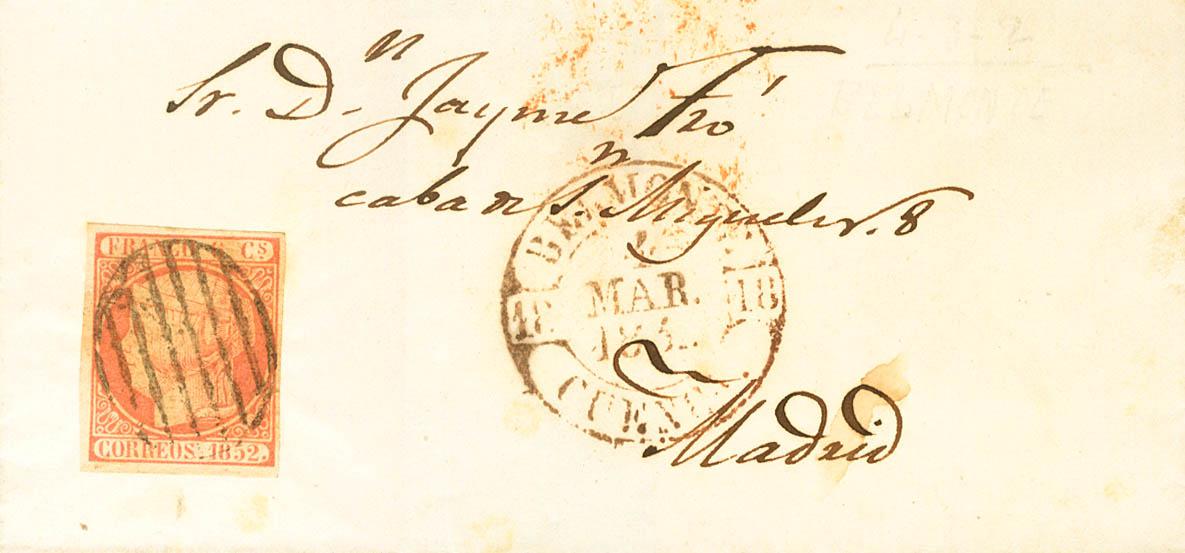 Sr. Dn. Jayme Fró
caba de Sn. Miguel nr. 8
Madrid
FRANCO 6 Cs
CORREOS. 1852.
BELMONTE
MAR.
18 18
CUENCA